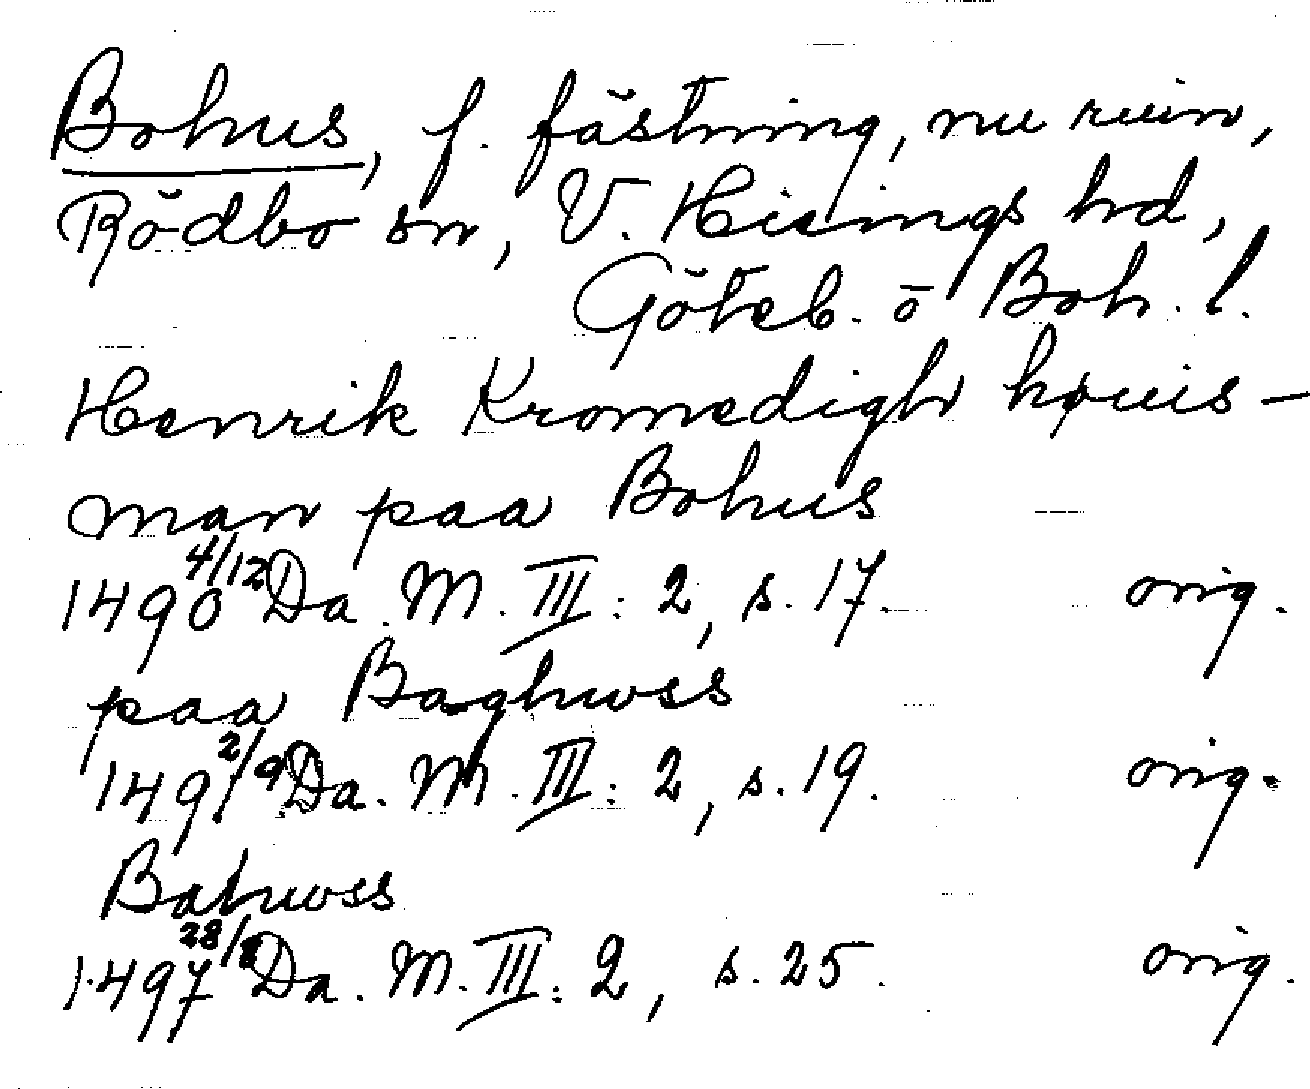 Bohus, f. fästning, nu ruin,
Rödbo sn, V. Hisings hd,
Göteb. o Boh. l.
Henrik Kromedigh høuis-
man paa Bohus
1490 4/12 Da. M. III: 2, s. 17. orig.
paa Baghwss
1491 2/9 Da. M. III: 2, s. 19. orig.
Bahwss
1497 28/8 Da. M. III: 2, s. 25. orig.